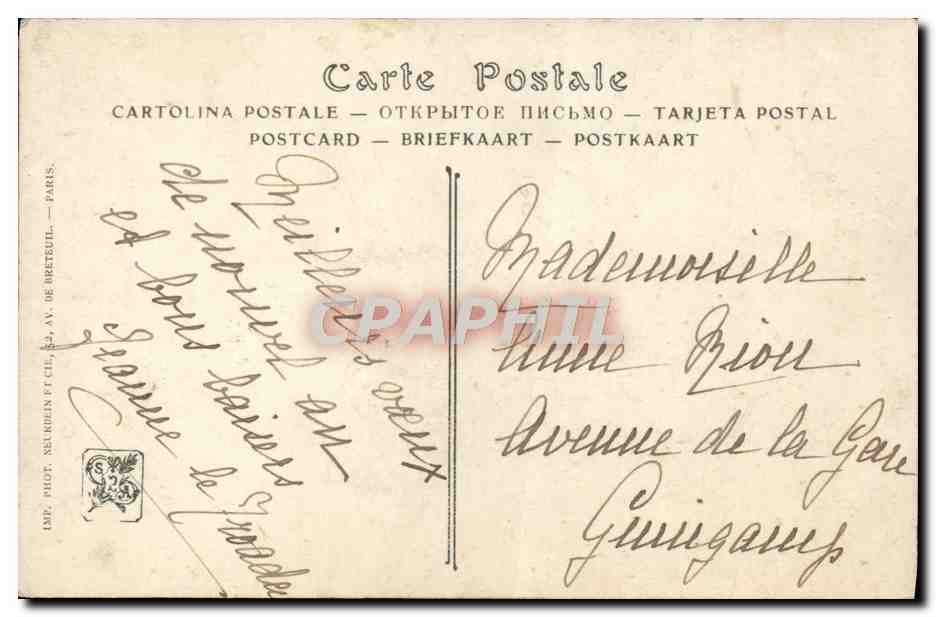 Carte Postale
CARTOLINA POSTALE — ОТКРЫТОЕ ПИСЬМО — TARJETA POSTAL
POSTCARD — BRIEFKAART — POSTKAART
IMP. PHOT. NEURDEIN ET CIE, 52, AV. DE BRETEUIL. — PARIS.
Meilleurs vœux
de nouvel an
et bons baisers
Jeanne le Troadec
Mademoiselle
Anne Riou
Avenue de la Gare
Guingamp
CPAPHIL